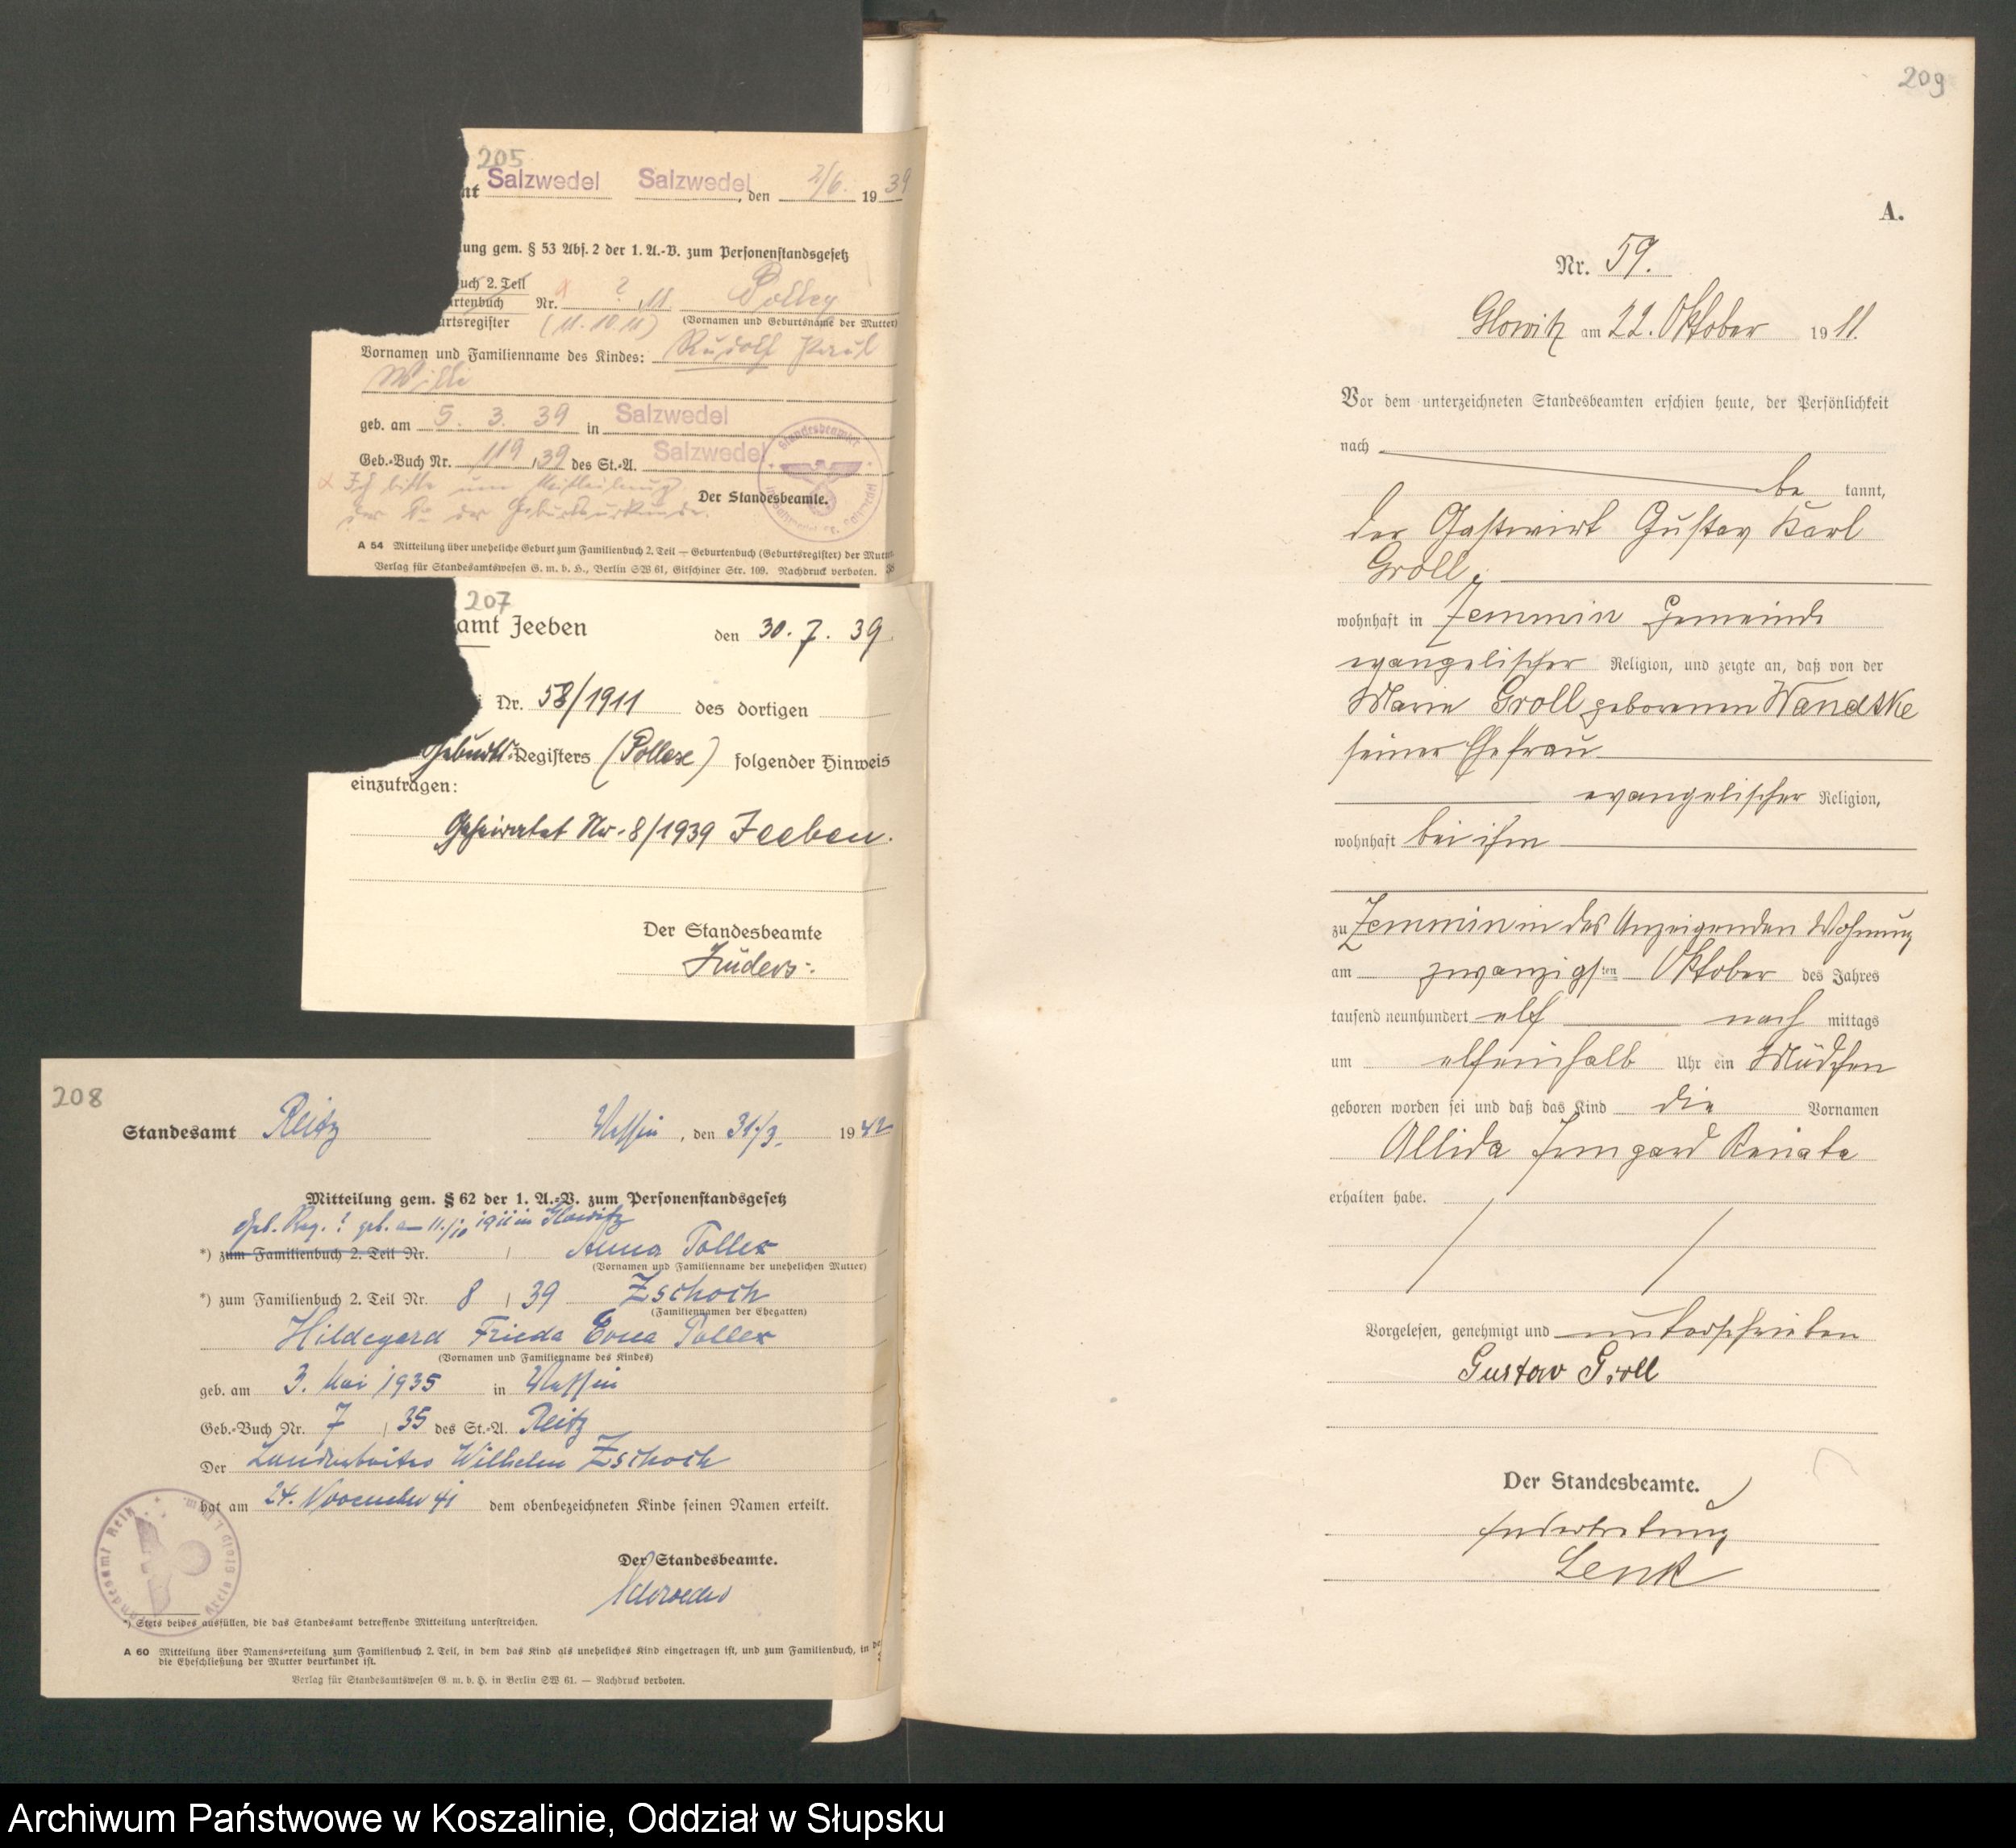 205
nt Salzwedel Salzwedel, den 2/6. 1939
ung gem. § 53 Abs. 2 der 1. A.-V. zum Personenstandsgesetz
uch 2. Teil
urtenbuch Nr. ? , 11.
urtsregister (11.10.11) (Vornamen und Geburtsname der Mutter)
Vornamen und Familienname des Kindes: Rudolf Paul
Willi
geb. am 5. 3. 39 in Salzwedel
Geb.-Buch Nr. 119, 39 des St.-A. Salzwedel
Ich bitte um Mitteilung
der Nr der Geburtsurkunde.
Der Standesbeamte.
A 54 Mitteilung über uneheliche Geburt zum Familienbuch 2. Teil — Geburtenbuch (Geburtsregister) der Mutter
Verlag für Standesamtswesen G. m. b. H., Berlin SW 61, Gitschiner Str. 109. Nachdruck verboten. 38
207
amt Jeeben den 30. 7. 39.
Nr. 58/1911 des dortigen
Geburts-Registers (Pollex) folgender Hinweis
einzutragen:
Geheiratet Nr. 8/1939 Jeeben.
Der Standesbeamte
Lüders.
208
Standesamt Reitz Wussin, den 31./3. 1942
Mitteilung gem. § 62 der 1. A.-V. zum Personenstandsgesetz
Geb. Reg. ? geb. am 11./10 1911 in Glowitz
*) zum Familienbuch 2. Teil Nr. / Anna Pollex
(Vornamen und Familienname der unehelichen Mutter)
*) zum Familienbuch 2. Teil Nr. 8 / 39 Zschoch
(Familiennamen der Ehegatten)
Hildegard Frieda Erna Pollex
(Vornamen und Familienname des Kindes)
geb. am 3. Mai 1935 in Wussin
Geb.-Buch Nr. 7 / 35 des St.-A. Reitz
Der Landarbeiter Wilhelm Zschoch
hat am 24. November 41 dem obenbezeichneten Kinde seinen Namen erteilt.
Der Standesbeamte.
*) Stets beides ausfüllen, die das Standesamt betreffende Mitteilung unterstreichen.
A 60 Mitteilung über Namenserteilung zum Familienbuch 2. Teil, in dem das Kind als uneheliches Kind eingetragen ist, und zum Familienbuch, in de
die Eheschließung der Mutter beurkundet ist.
Verlag für Standesamtswesen G. m. b. H. in Berlin SW 61. — Nachdruck verboten.
209
A.
Nr. 59.
Glowitz am 22. Oktober 1911.
Vor dem unterzeichneten Standesbeamten erschien heute, der Persönlichkeit
nach
be kannt,
der Gastwirt Gustav Karl
Groll,
wohnhaft in Zemmin Gemeinde
evangelischer Religion, und zeigte an, daß von der
Marie Groll geborenen Wandtke
seiner Ehefrau
evangelischer Religion,
wohnhaft bei ihm
zu Zemmin in des Anzeigenden Wohnung
am zwanzigsten Oktober des Jahres
tausend neunhundert elf nach mittags
um elfeinhalb Uhr ein Mädchen
geboren worden sei und daß das Kind die Vornamen
Allida Irmgard Renate
erhalten habe.
Vorgelesen, genehmigt und unterschrieben
Gustav Groll
Der Standesbeamte.
In Vertretung
Lenk
Archiwum Państwowe w Koszalinie, Oddział w Słupsku